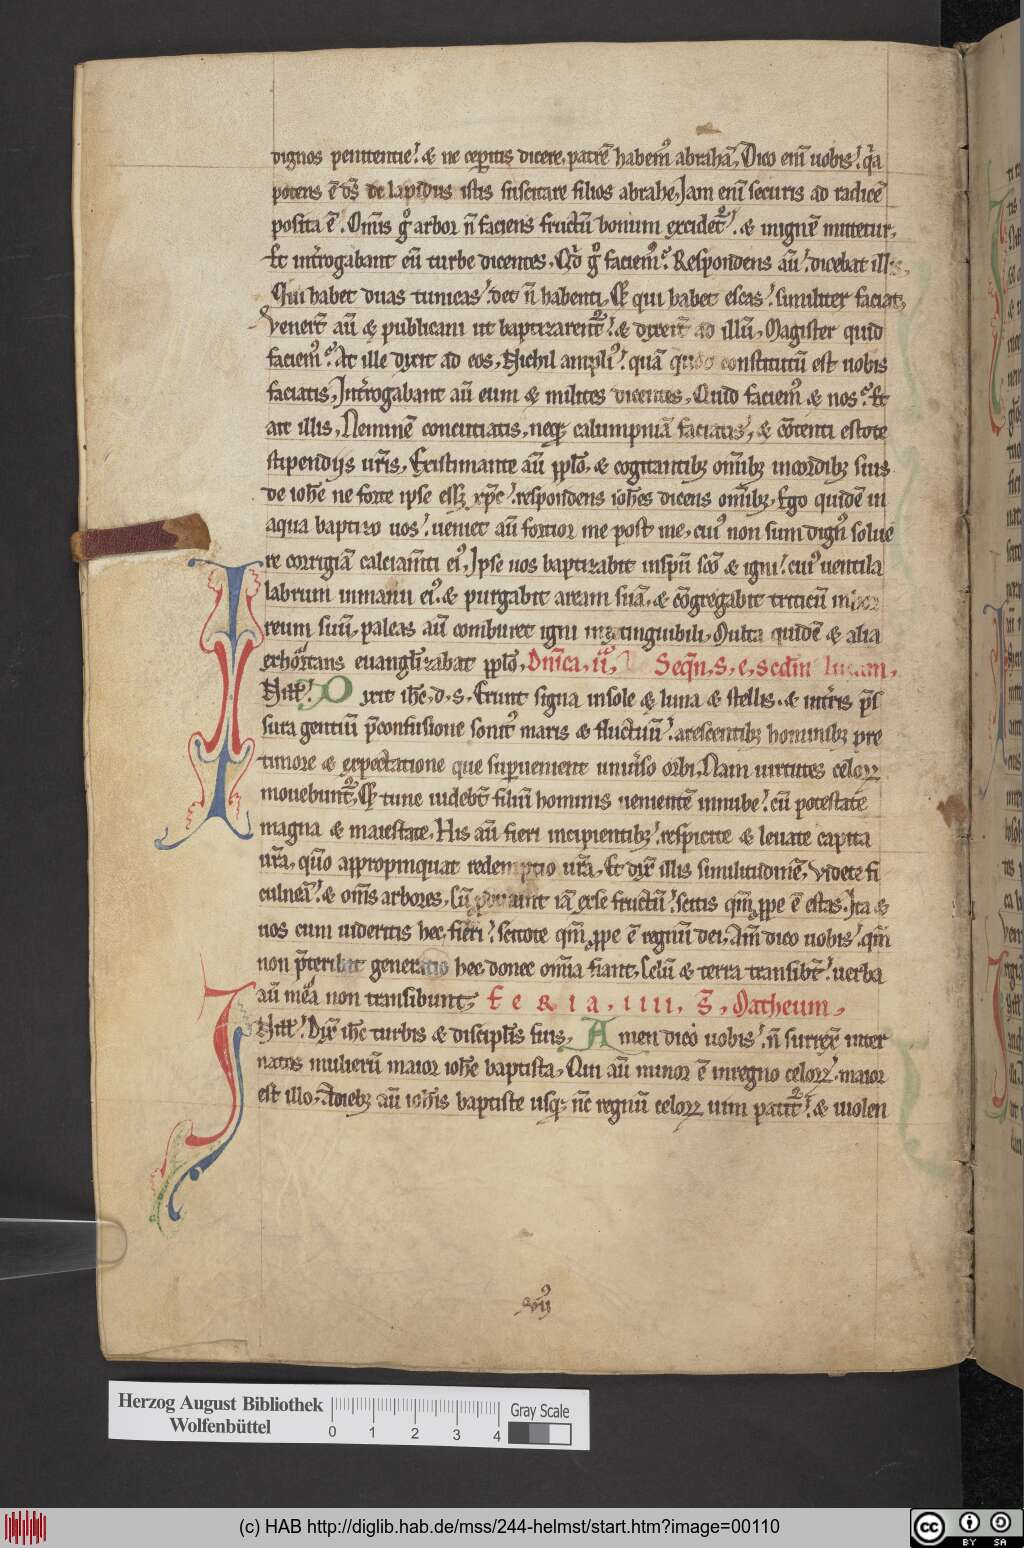 dignos penitentie. & ne ceperitis dicere, patrē habemꝰ abrahā, Dico eni̅ uobis. q̇a
potens ē dš de lapidius istis suscitare filios abrahe, Jam eni̅ securis ad radicē
posita ē. Om̅is gͦ arbor n̅ faciens fructu̅ bonum excidet᷑. & inignē mittetur,
Et int̓rogabant eu̅ turbe dicentes, Qͥd gͦ faciemꝰ. Respondens au̅. dicebat illis,
Qui habet duas tunicas. det n̅ habenti, Et qui habet escas. similiter faciat,
Venert̅ au̅ & publicani ut baptizarent᷑. & dixert̅ ad illu̅, Magister quid
faciemꝰ. At ille dixit ad eos, Nichil ampliꝰ. quā quod constitutu̅ est uobis
faciatis, Int̓rogabant au̅ eum & milites dicentes, Quid faciemꝰ & nos. Et
ait illis, Neminē concutiatis, neqꝫ calumpniā faciatis, & co̅tenti estote
stipendijs ur̅is, Existimante au̅ pp̅lo, & cogitantibꝫ om̅ibꝫ incordibꝫ suis
de ioh̅e ne forte ipse esset xp̅c. respondens ioh̅es dicens om̅ibꝫ, Ego quidē in
aqua baptizo uos. ueniet au̅ fortior me post me, cuiꝰ non sum dignꝰ solue
re corrigiā calciam̅ti eiꝰ, Ipse uos baptizabit insp̅u sc̅o & igni. cuiꝰ uentila
labrum inmanu eiꝰ. & purgabit aream suā, & co̅gregabit triticu̅ inhor
reum suu̅, paleas au̅ comburet igni inextinguibili, Multa quidē & alia
exhortans euangl̅izabat pp̅lo, Dn̅ica, ii, Seqn̅, s, e, scdm̅ lucam,
N ill. Dixit ih̅c, d, s, Erunt signa insole & luna & stellis, & int̓ris p̅s
sura gentiu̅ p̅confusione sonitꝰ maris & fluctuu̅. arescentibꝫ hominibꝫ pre
timore & expectatione que superuenient uniu̓so orbi, Nam uirtutes celoꝝ
mouebunt᷑, Et tunc uidebt̅ filiu̅ hominis uenientē innube. cu̅ potestate
magna & maiestate, His au̅ fieri incipientibꝫ. respicite & leuate capita
ur̅a, quo̅ appropinquat redemptio ur̅a, Et dix̅ illis similitudinē, Videte fi
culneā. & om̅s arbores, cu̅ producunt iā exse fructu̅. scitis qm̅ ꝓpe ē estas. Ita &
uos cum uideritis hec fieri. scitote qm̅ ꝓpe ē regnu̅ dei, Am̅ dico uobis. qm̅
non p̅teribit generatio hec donec om̅ia fiant, Celu̅ & terra transibt̅. uerba
au̅ mea non transibunt, Feria, iiii, s̅, Matheum,
N ill. Dix̅ ih̅c turbis & discipl̅is suis, Amen dico uobis. n̅ surrex̅ inter
natos mulieru̅ maior ioh̅e baptista, Qui au̅ minor ē inregno celoꝝ, maior
est illo, Adiebꝫ au̅ ioh̅is baptiste usqꝫ nc̅ regnu̅ celoꝝ uim patit᷑. & uiolen
Herzog August Bibliothek
Wolfenbüttel
0 1 2 3 4
Gray Scale
(c) HAB http://diglib.hab.de/mss/244-helmst/start.htm?image=00110
cc BY SA